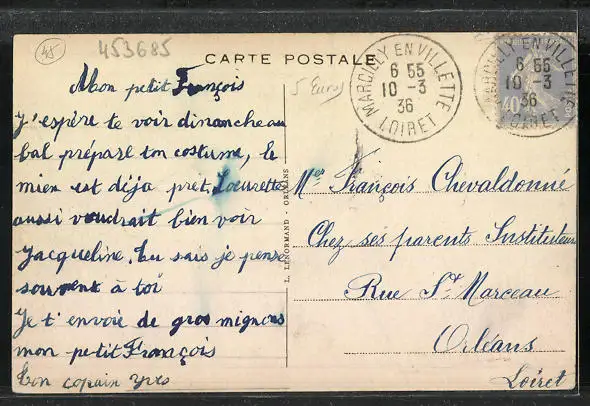 45
453685
CARTE POSTALE
5 Euros
MARCILLY EN VILLETTE
6 55
10 -3
36
LOIRET
MARCILLY EN VILLETTE
6 55
10 -3
36
LOIRET
40
Mon petit François
J'espère te voir dimanche au
bal prépare ton costume, le
mien est déja pret, Lourette
aussi voudrait bien voir
Jacqueline. tu sais je pense
souvent à toi
Je t'envoie de gros mignons
mon petit François
ton copain Yves
L. LENORMAND - ORLÉANS
Mer François Chevaldonné
Chez ses parents Instituteurs
Rue St Marceau
Orléans
Loiret